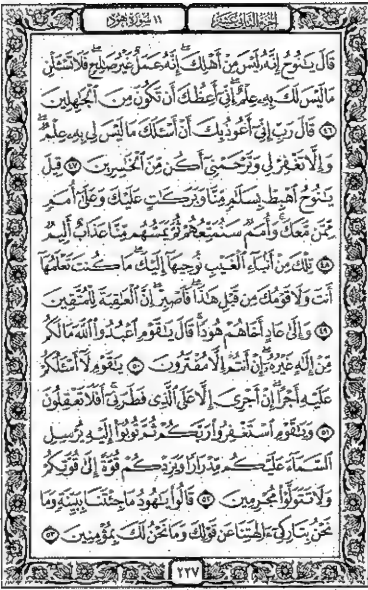 الجزء الثاني عشر ١١ سورة هود
قَالَ يَٰنُوحُ إِنَّهُۥ لَيْسَ مِنْ أَهْلِكَ إِنَّهُۥ عَمَلٌ غَيْرُ صَٰلِحٍ فَلَا تَسْـَٔلْنِ
مَا لَيْسَ لَكَ بِهِۦ عِلْمٌ إِنِّىٓ أَعِظُكَ أَن تَكُونَ مِنَ ٱلْجَٰهِلِينَ
٤٦ قَالَ رَبِّ إِنِّىٓ أَعُوذُ بِكَ أَنْ أَسْـَٔلَكَ مَا لَيْسَ لِى بِهِۦ عِلْمٌ
وَإِلَّا تَغْفِرْ لِى وَتَرْحَمْنِىٓ أَكُن مِّنَ ٱلْخَٰسِرِينَ ٤٧ قِيلَ
يَٰنُوحُ ٱهْبِطْ بِسَلَٰمٍ مِّنَّا وَبَرَكَٰتٍ عَلَيْكَ وَعَلَىٰٓ أُمَمٍ
مِّمَّن مَّعَكَ وَأُمَمٌ سَنُمَتِّعُهُمْ ثُمَّ يَمَسُّهُم مِّنَّا عَذَابٌ أَلِيمٌ
٤٨ تِلْكَ مِنْ أَنۢبَآءِ ٱلْغَيْبِ نُوحِيهَآ إِلَيْكَ مَا كُنتَ تَعْلَمُهَآ
أَنتَ وَلَا قَوْمُكَ مِن قَبْلِ هَٰذَا فَٱصْبِرْ إِنَّ ٱلْعَٰقِبَةَ لِلْمُتَّقِينَ
٤٩ وَإِلَىٰ عَادٍ أَخَاهُمْ هُودًا قَالَ يَٰقَوْمِ ٱعْبُدُوا۟ ٱللَّهَ مَا لَكُم
مِّنْ إِلَٰهٍ غَيْرُهُۥٓ إِنْ أَنتُمْ إِلَّا مُفْتَرُونَ ٥٠ يَٰقَوْمِ لَآ أَسْـَٔلُكُمْ
عَلَيْهِ أَجْرًا إِنْ أَجْرِىَ إِلَّا عَلَى ٱلَّذِى فَطَرَنِىٓ أَفَلَا تَعْقِلُونَ
٥١ وَيَٰقَوْمِ ٱسْتَغْفِرُوا۟ رَبَّكُمْ ثُمَّ تُوبُوٓا۟ إِلَيْهِ يُرْسِلِ
ٱلسَّمَآءَ عَلَيْكُم مِّدْرَارًا وَيَزِدْكُمْ قُوَّةً إِلَىٰ قُوَّتِكُمْ
وَلَا تَتَوَلَّوْا۟ مُجْرِمِينَ ٥٢ قَالُوا۟ يَٰهُودُ مَا جِئْتَنَا بِبَيِّنَةٍ وَمَا
نَحْنُ بِتَارِكِىٓ ءَالِهَتِنَا عَن قَوْلِكَ وَمَا نَحْنُ لَكَ بِمُؤْمِنِينَ ٥٣
٢٢٧